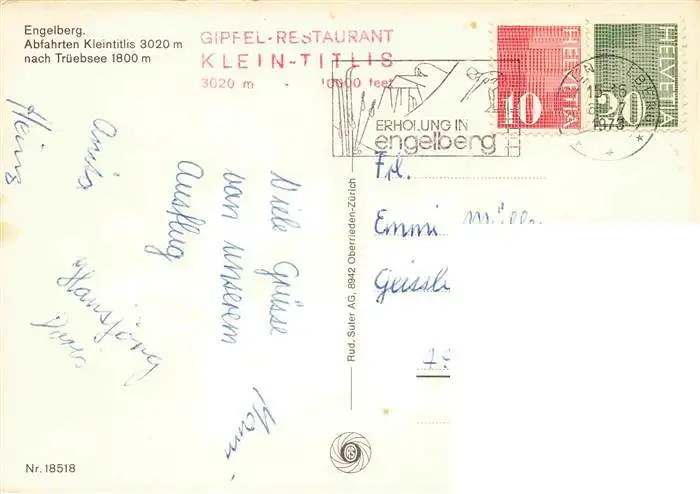 Engelberg.
Abfahrten Kleintitlis 3020 m
nach Trüebsee 1800 m
GIPFEL-RESTAURANT
KLEIN-TITLIS
3020 m - 10000 feet
ERHOLUNG IN
engelberg
HELVETIA
10
HELVETIA
20
ENGELBERG
1973
Viele Grüsse
von unserem
Ausflug
Anita
Heinz
Hansjörg
Doris
Frl.
Emmi
Rud. Suter AG, 8942 Oberrieden-Zürich
Nr. 18518